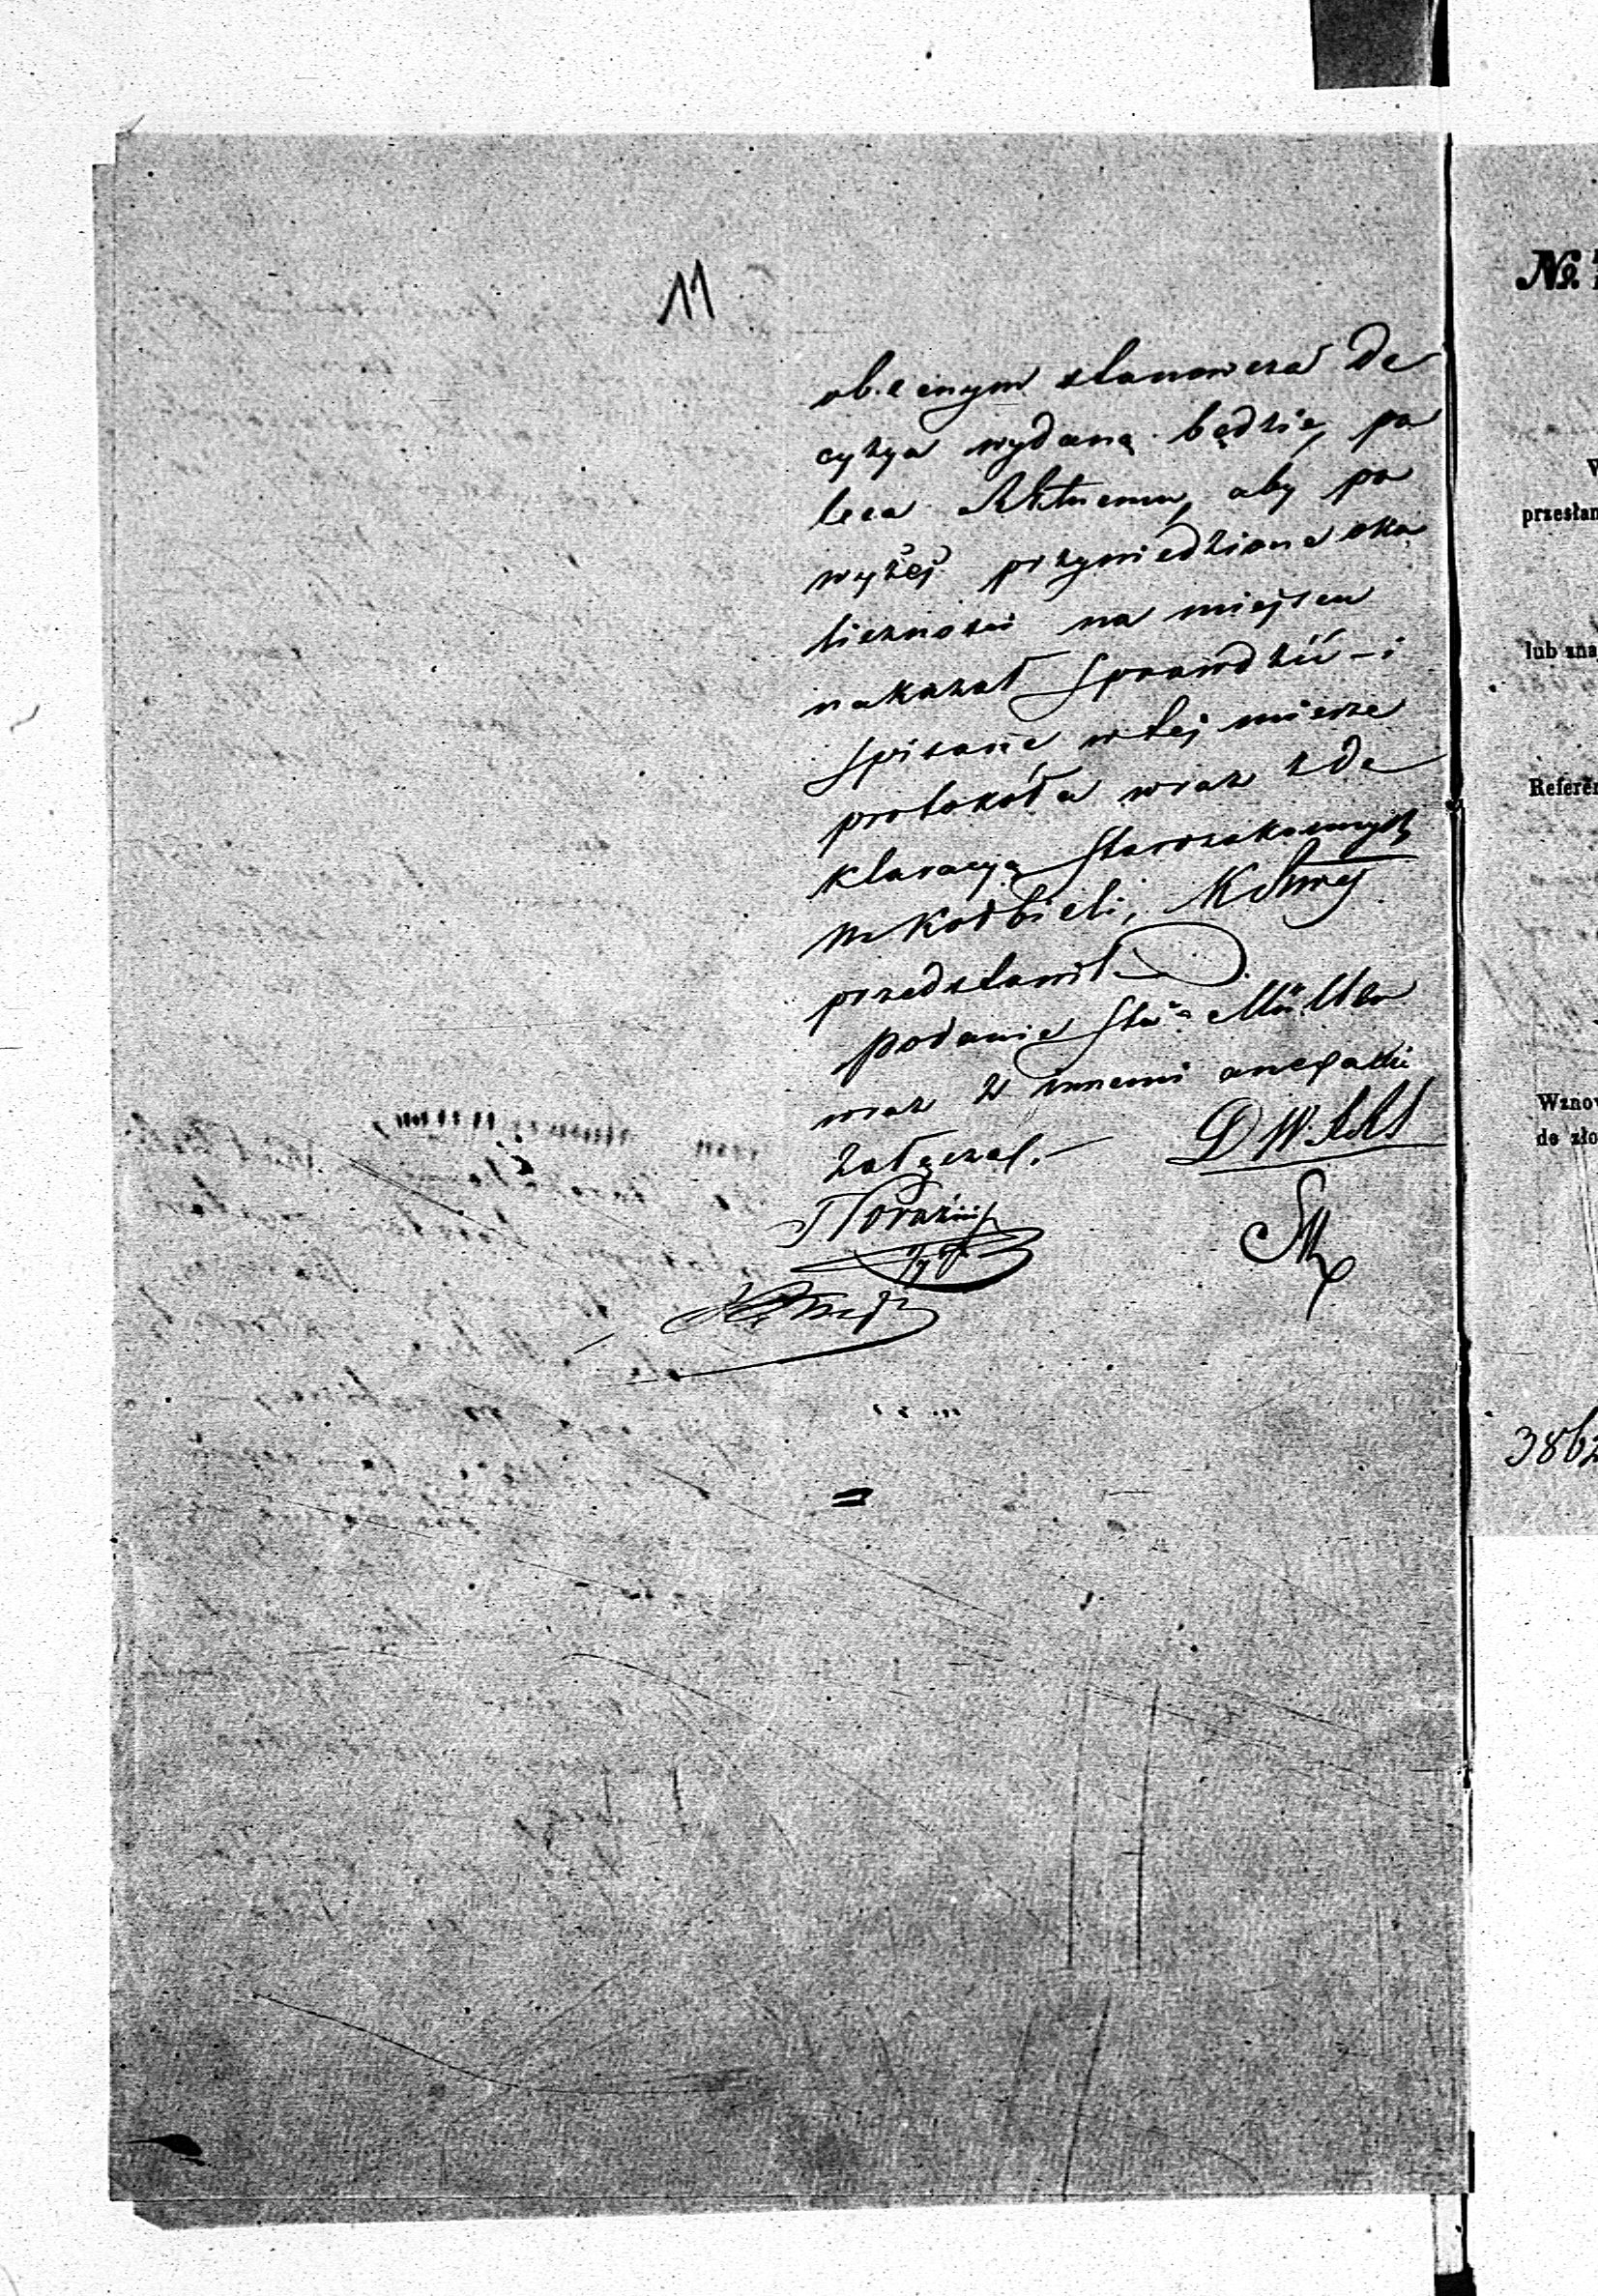 11
obecnym stanowcza de
cyzya wydaną będzie, po
leca mu, aby po
wyżej przywiedzione oko
liczności na miejscu
nakazał sprawdzić – i
spisane w tej mierze
protokóła wraz z de
klaracyą Starozakonnych
w Kołbieli, 
przedstawił
podanie Müller
wraz z innemi anexami
załącza. –
D. W.
№
przesłan
lub zna
Referen
Wznow
de zło
3862